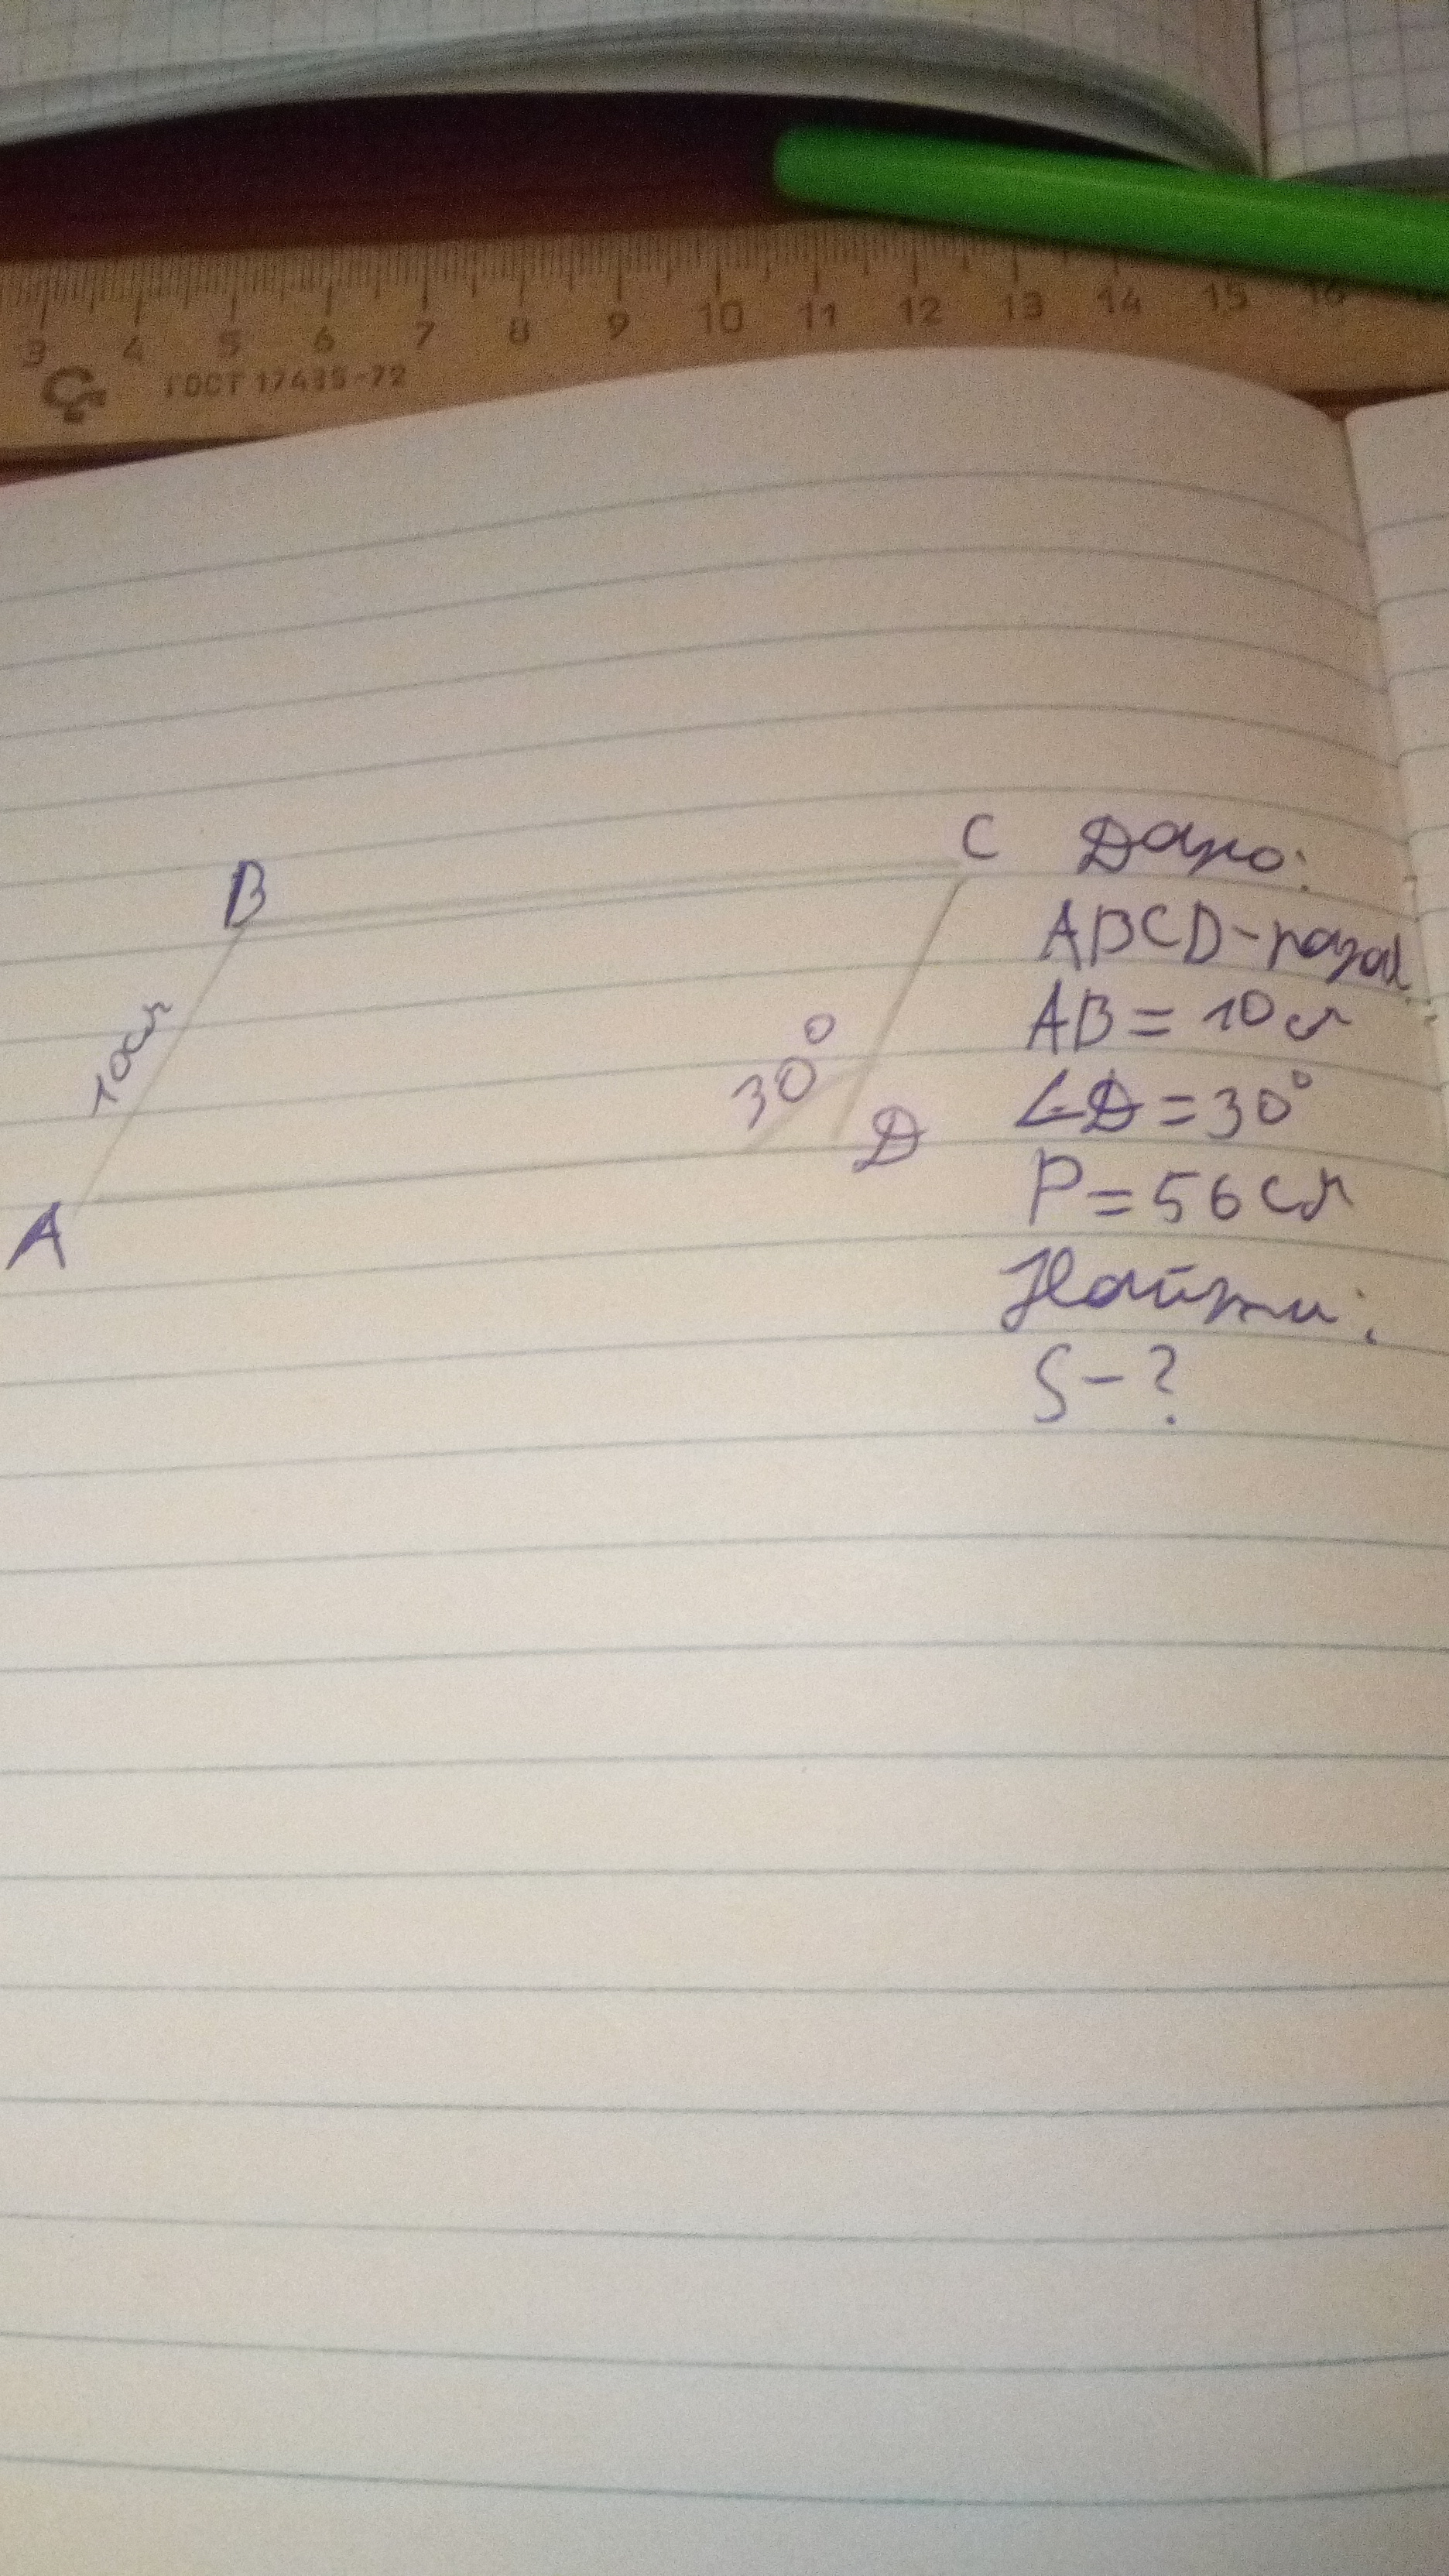 3 4 5 6 7 8 9 10 11 12 13 14 15 16
ГОСТ 17435-72
B
C
10см
30°
A
D
Дано:
ABCD-парал
AB = 10см
∠D = 30°
P = 56 см
Найти:
S-?